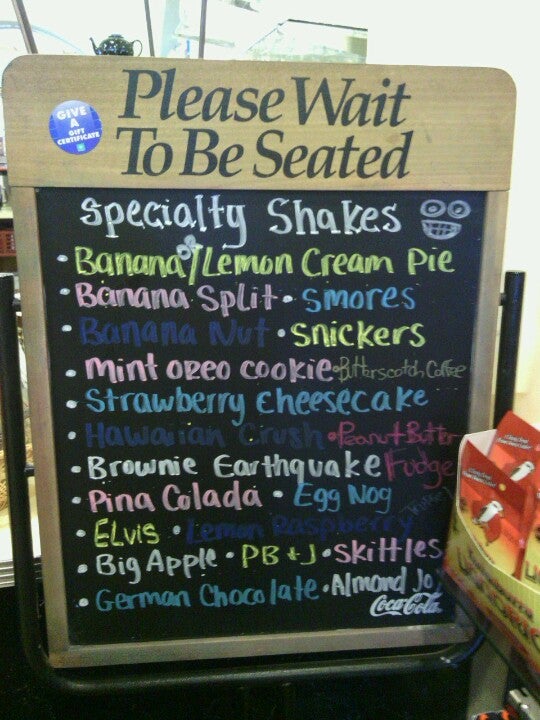 Please Wait
To Be Seated
GIVE
A
GIFT
CERTIFICATE
Specialty Shakes
• Banana/Lemon Cream Pie
• Banana Split • Smores
• Banana Nut • Snickers
• Mint Oreo Cookie • Butterscotch Coffee
• Strawberry Cheesecake
• Hawaiian Crush • Peanut Butter
• Brownie Earthquake Fudge
• Pina Colada • Egg Nog
• Elvis • Lemon Raspberry
• Big Apple • PB + J • Skittles
• German Chocolate • Almond Joy
Coca-Cola